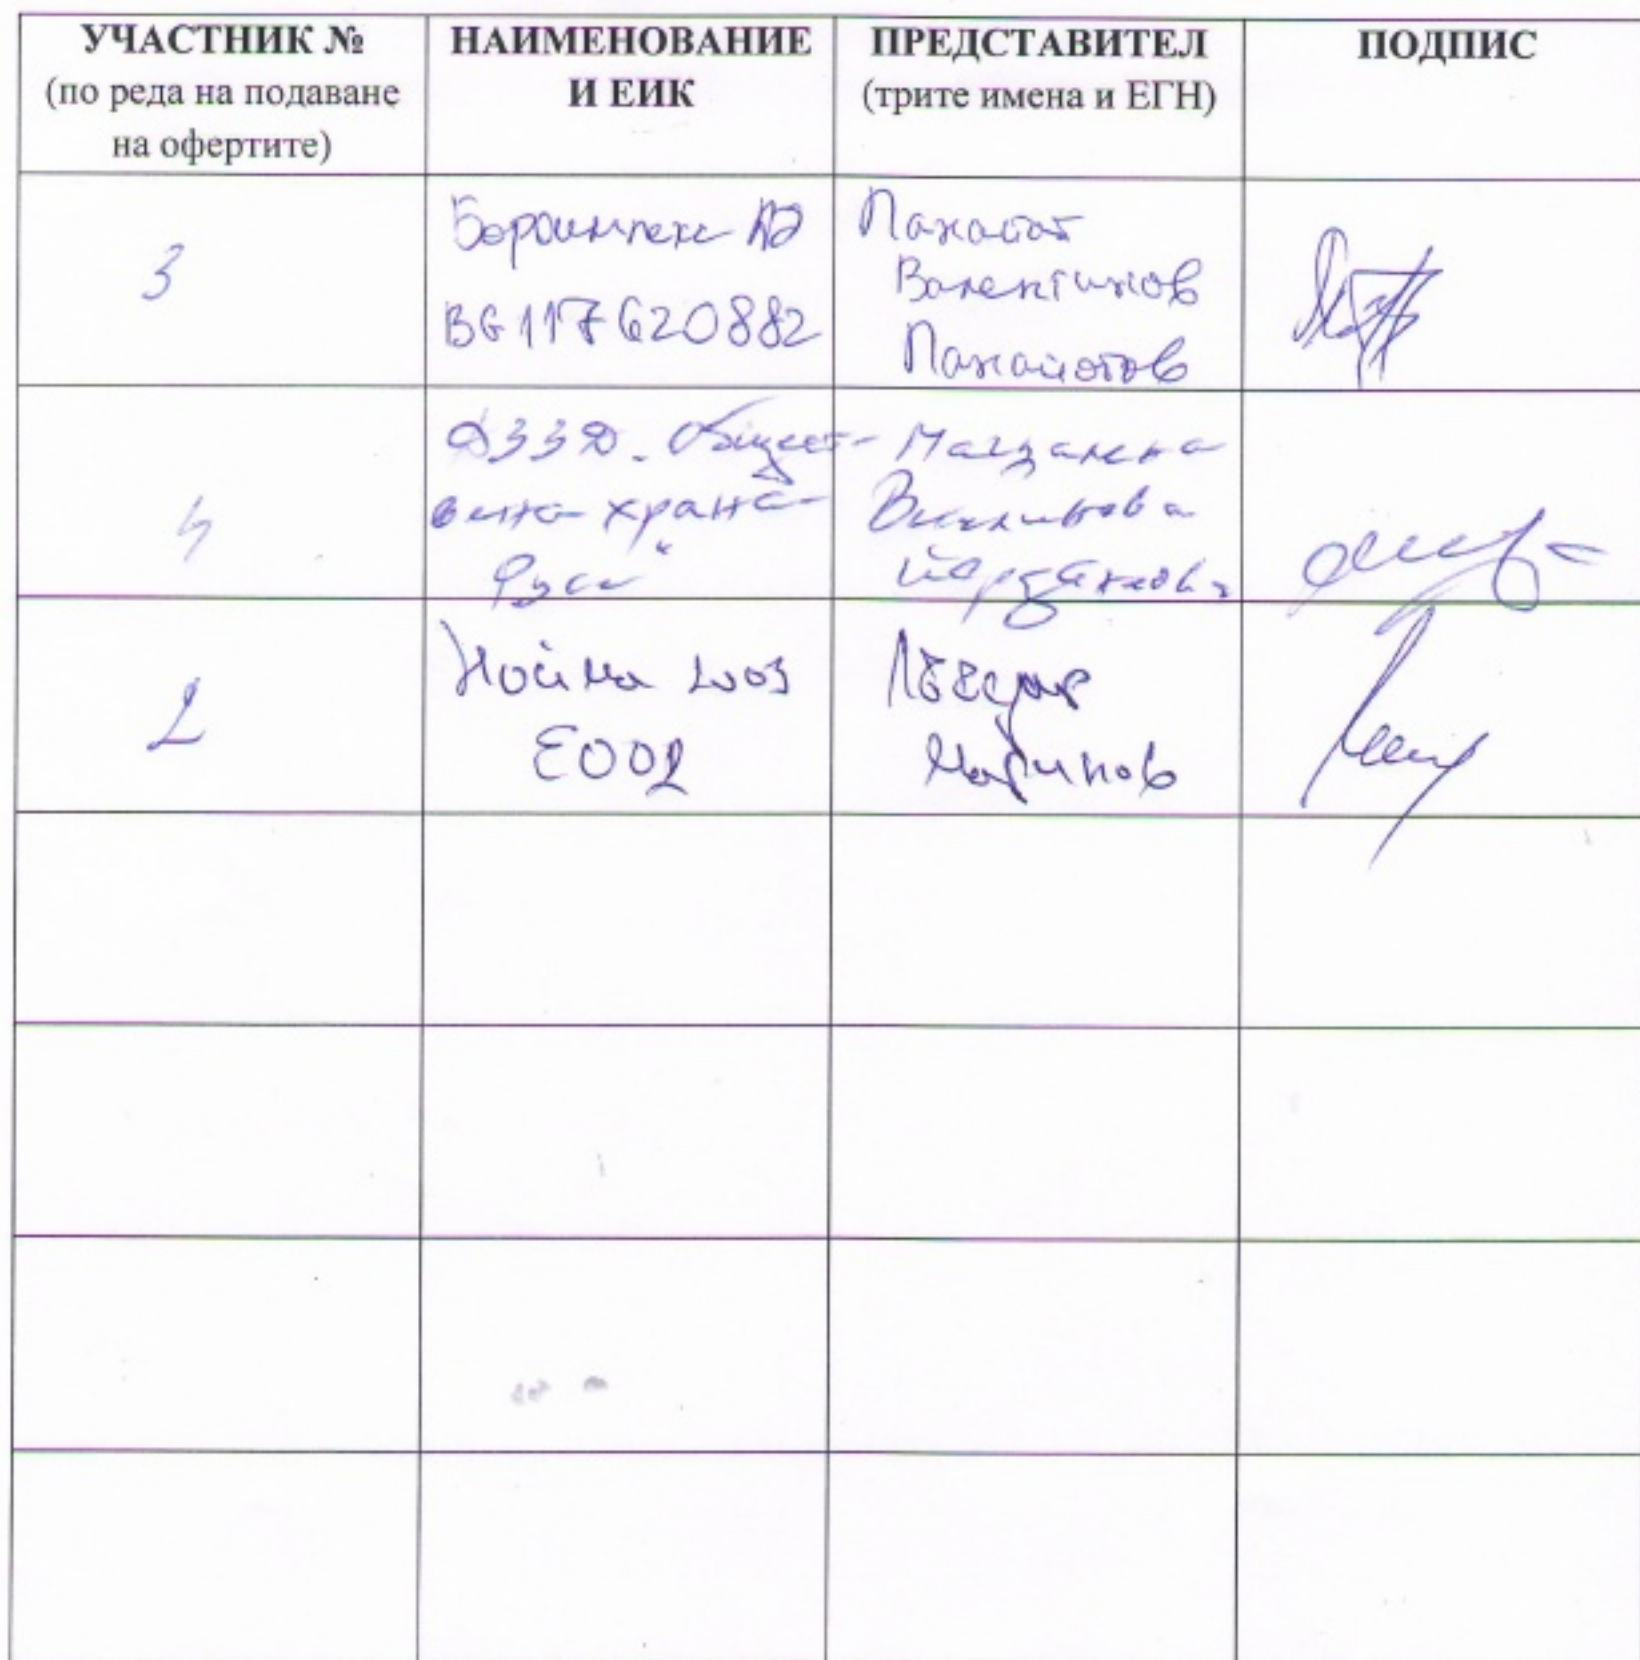 УЧАСТНИК №
(по реда на подаване
на офертите)
НАИМЕНОВАНИЕ
И ЕИК
ПРЕДСТАВИТЕЛ
(трите имена и ЕГН)
ПОДПИС
3
Бороимпекс АД
BG117620882
Панайот
Валентинов
Панайотов
4
ДЗЗД "Общест-
вена храна-
Русе"
Магдалена
Йорданова
2
Нойма 2003
ЕООД
Маринов